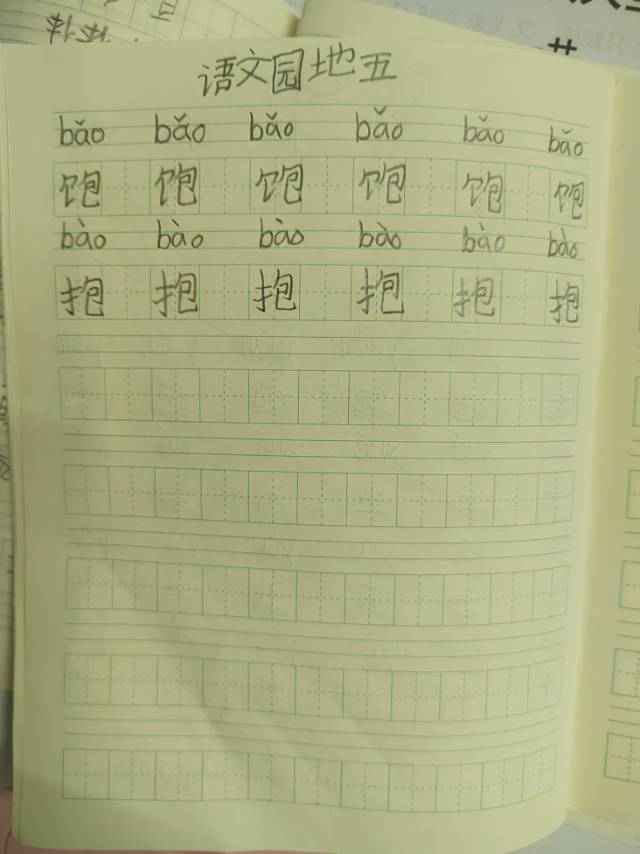 语文园地五
bǎo bǎo bǎo bǎo bǎo bǎo
饱 饱 饱 饱 饱 饱
bào bào bào bào bào bào
抱 抱 抱 抱 抱 抱